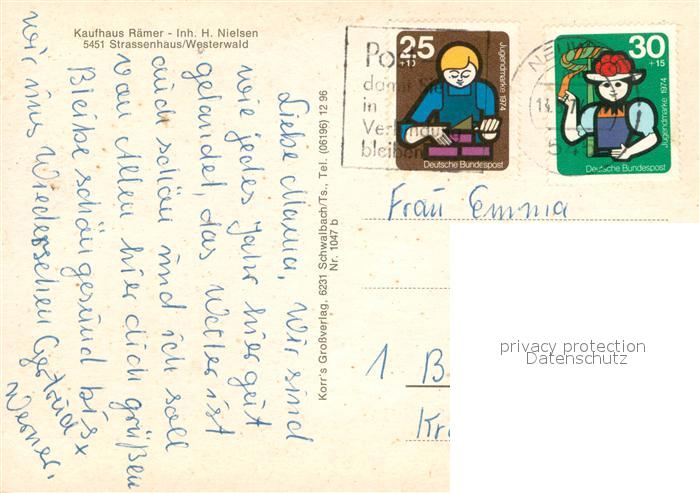 Kaufhaus Rämer - Inh. H. Nielsen
5451 Strassenhaus/Westerwald
Liebe Mama, Wir sind
wie jedes Jahr hier gut
gelandet, das Wetter ist
auch schön und ich soll
von Allen hier dich grüßen
Bleibe schön gesund bis
wir uns Wiedersehen Gertrud
Werner.
Korr's Großverlag, 6231 Schwalbach/Ts., Tel. (06196) 12 96
Nr. 1047 b
Po
damit Sie
in
Verbindung
bleiben
25
+10
Jugendmarke 1974
Deutsche Bundespost
NEUW
14.
5
30
+15
Jugendmarke 1974
Deutsche Bundespost
Frau Emmia
1. B
Kr
privacy protection
Datenschutz